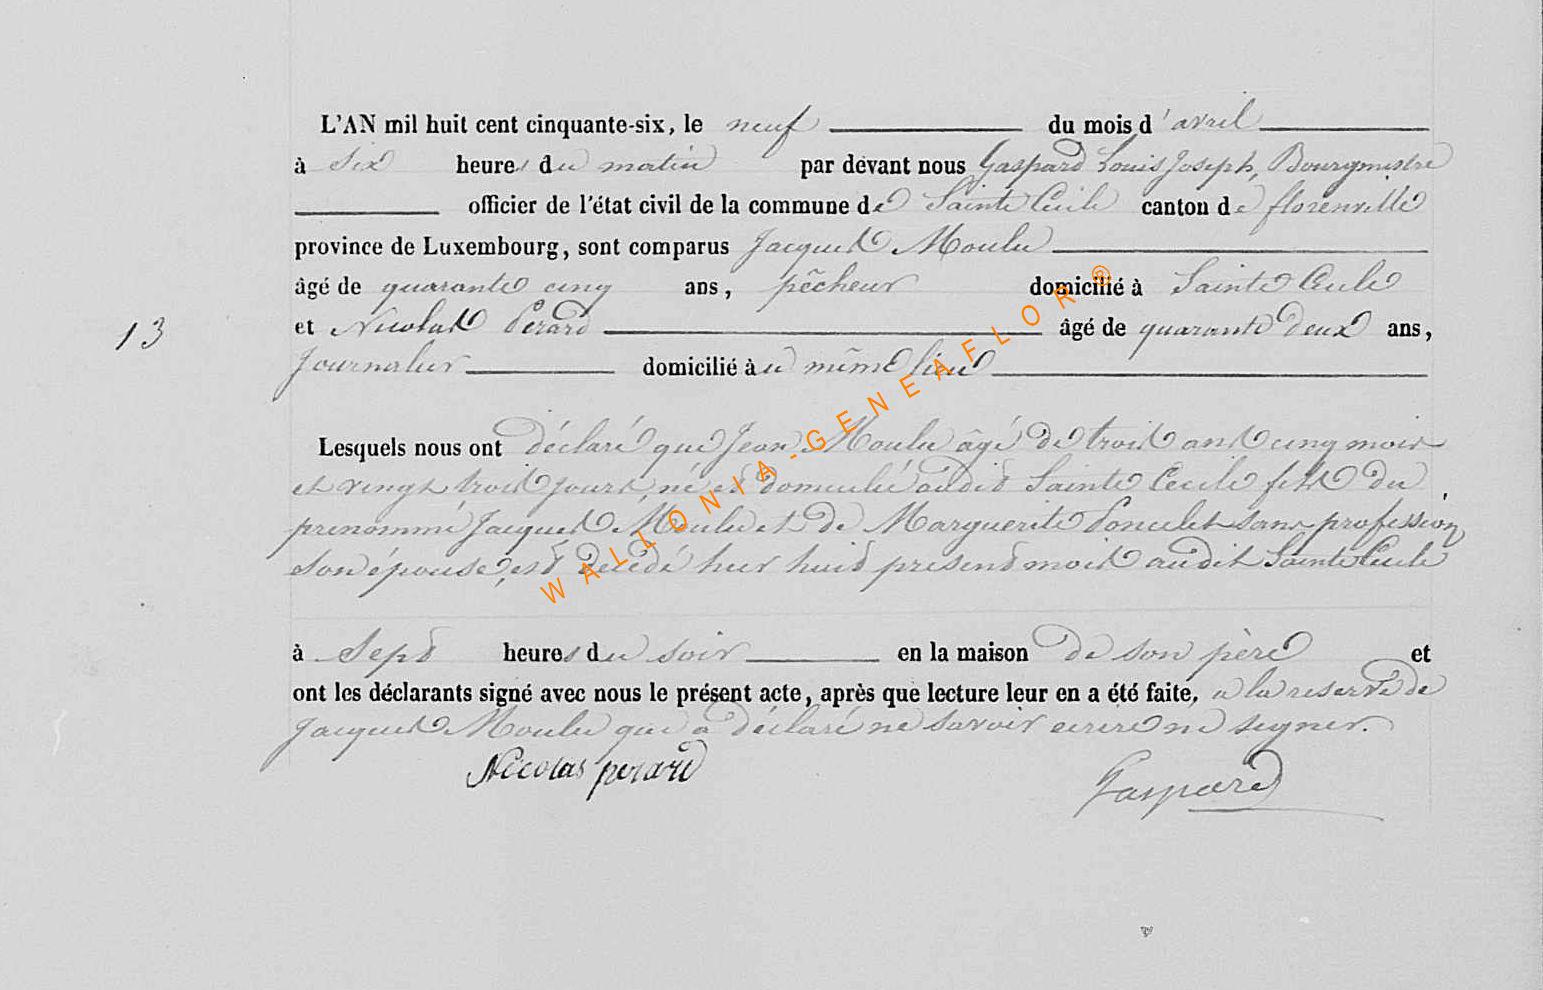 L'AN mil huit cent cinquante-six, le neuf du mois d'avril
à six heures du matin par devant nous Gaspard Louis Joseph, Bourgmestre
officier de l'état civil de la commune de Sainte Cécile canton de florenville
province de Luxembourg, sont comparus Jacques Moulu
âgé de quarante cinq ans, pêcheur domicilié à Sainte Cécile
13 et Nicolas Perard âgé de quarante deux ans,
Journalier domicilié au même lieu
Lesquels nous ont déclaré que Jean Moulu âgé de trois ans cinq mois
et vingt trois jours, né et domicilié audit Sainte Cécile fils du
prénommé Jacques Moulu et de Marguerite Poncelet sans profession
son épouse, est décédé hier huit présent mois audit Sainte Cécile
à Sept heures du soir en la maison de son père et
ont les déclarants signé avec nous le présent acte, après que lecture leur en a été faite, a la reserve de
Jacques Moulu qui a déclaré ne savoir ecrire ni signer.
Nicolas perard Gaspard
WALLONIA-GENEAFLOR®